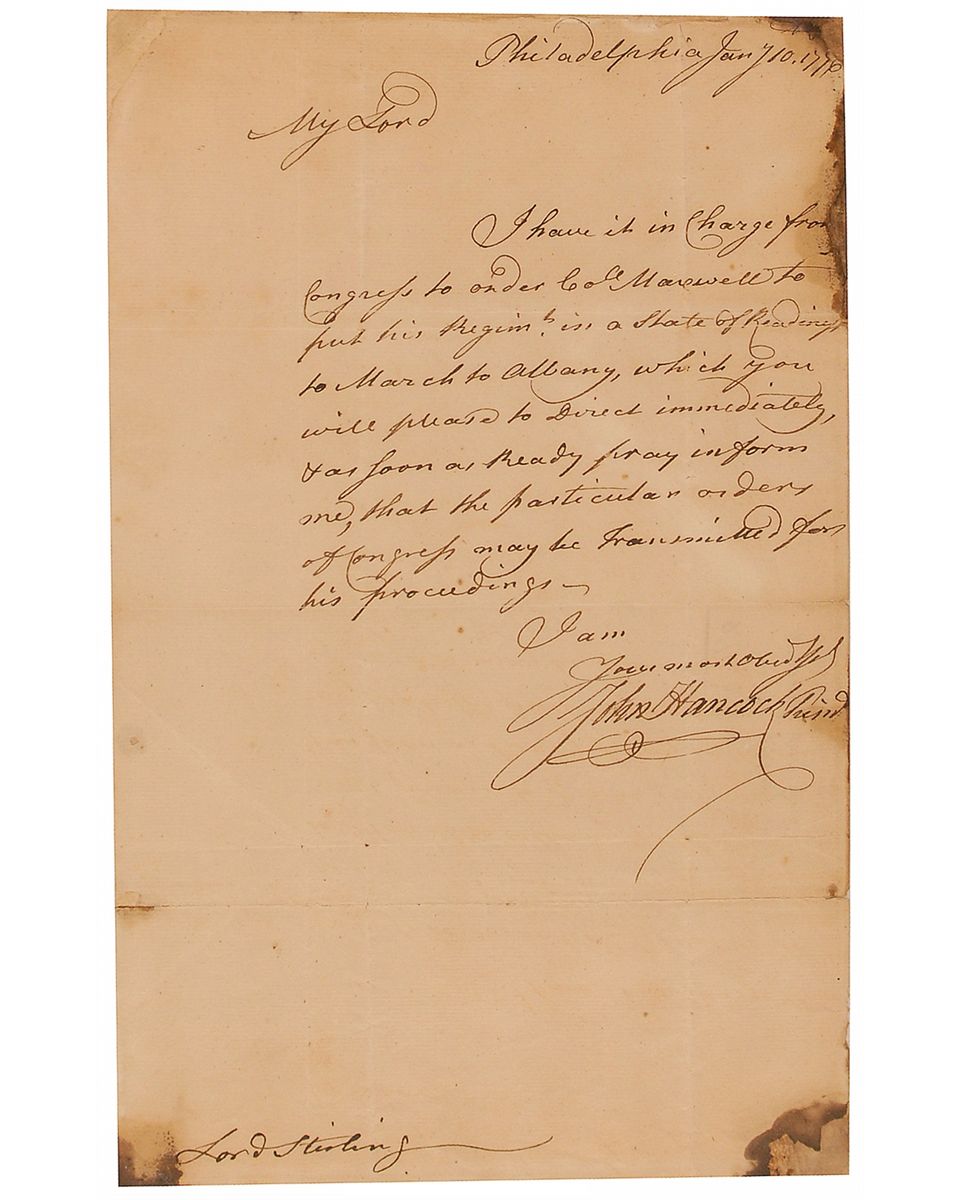 Philadelphia Jany 10. 1776
My Lord
I have it in Charge from
Congress to order Col. Maxwell to
put his Regimt. in a State of Readiness
to March to Albany, which you
will please to Direct immediately,
& as soon as Ready pray inform
me, that the particular orders
of Congress may be transmitted for
his proceedings —
I am
Your most Obed
John Hancock Presid
Lord Stirling